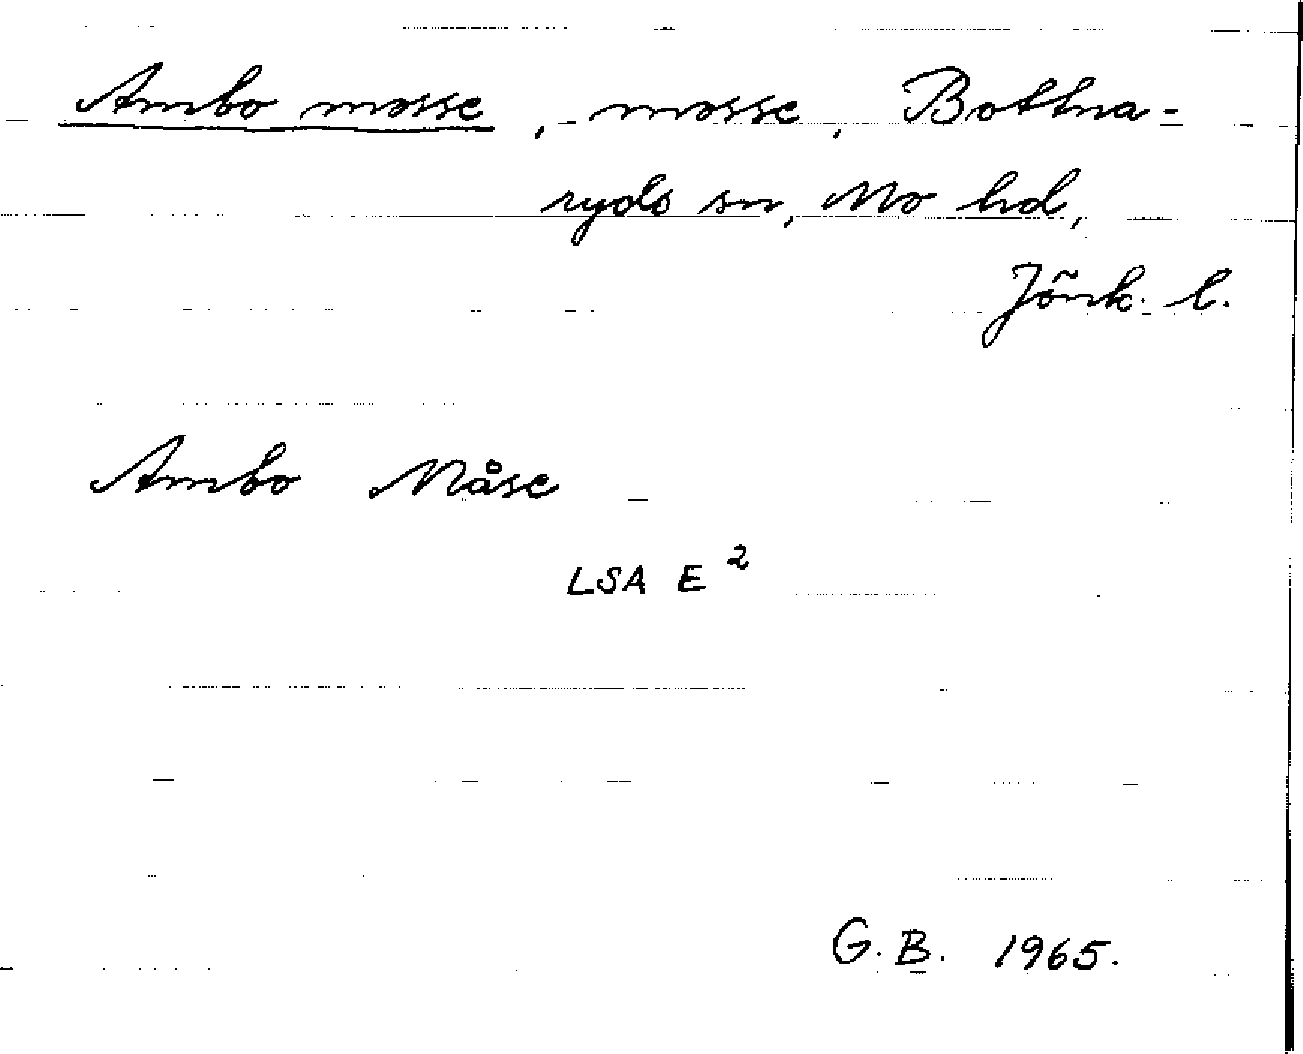 Ambo mosse, mosse, Bottna-
ryds sn, Mo hd,
Jönk. l.
Ambo Måse
LSA E²
G.B. 1965.